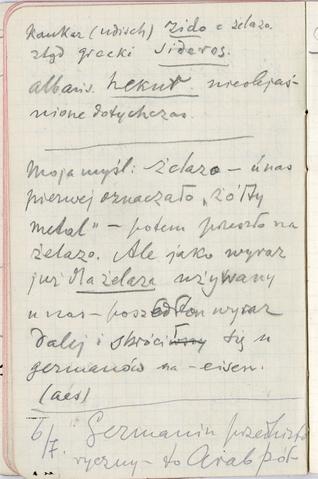 Kaukaz (udisch) zido = żelazo
stąd grecki Sideros.
albańs. hekur nieobjaś-
nione dotychczas.
Moja myśl: żelazo – u nas
pierwej oznaczało „żółty
metal" – potem przeszło na
żelazo. Ale jako wyraz
już dla żelaza używany
u nas – poszedł ten wyraz
dalej i skrócił się u
germanów na – eisen.
(aes)
6/7. Germanin przedhisto
ryczny – to Arab pół-